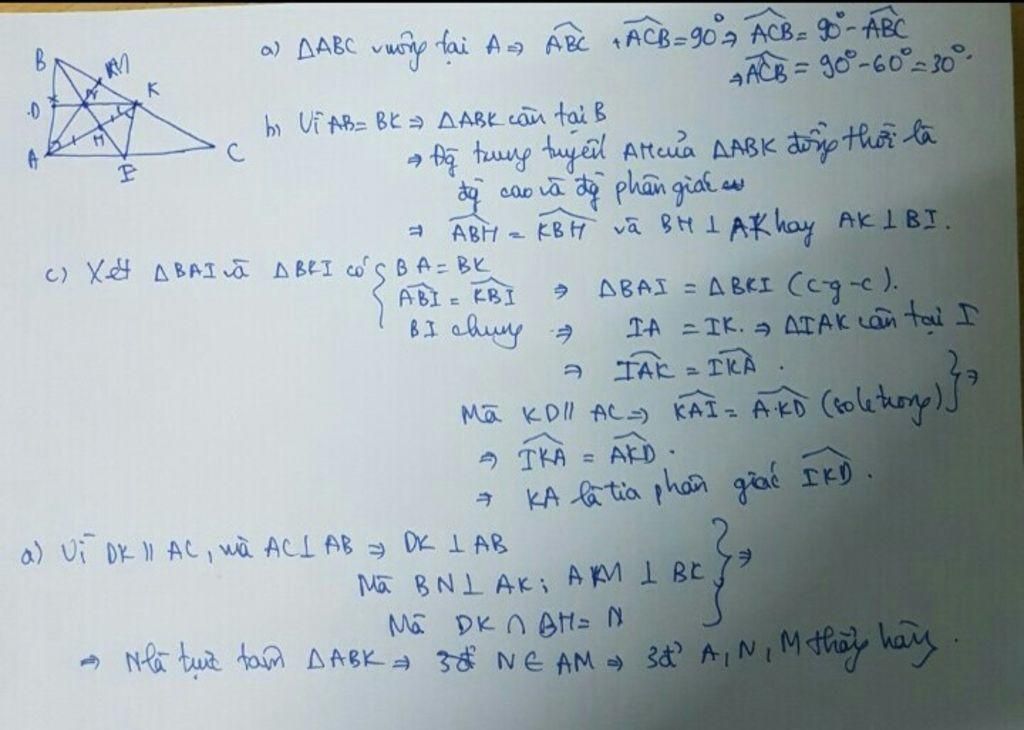 a) ΔABC vuông tại A ⇒ ABC + ACB = 90° ⇒ ACB = 90° - ABC
⇒ ACB = 90° - 60° = 30°.
B
M
D
N
K
H
A
I
C
b) Vì AB = BK ⇒ ΔABK cân tại B
⇒ Đg trung tuyến AH của ΔABK đồng thời là
đg cao và đg phân giác
⇒ ABH = KBH và BH ⊥ AK hay AK ⊥ BI.
c) Xét ΔBAI và ΔBKI có { BA = BK
ABI = KBI ⇒ ΔBAI = ΔBKI (c-g-c).
BI chung ⇒ IA = IK. ⇒ ΔIAK cân tại I
⇒ IAK = IKA.
Mà KD // AC ⇒ KAI = AKD (so le trong) } ⇒
⇒ IKA = AKD.
⇒ KA là tia phân giác IKD.
a) Vì DK // AC, mà AC ⊥ AB ⇒ DK ⊥ AB
Mà BN ⊥ AK; AM ⊥ BK } ⇒
Mà DK ∩ BH = N
⇒ N là trực tâm ΔABK ⇒ N ∈ AM ⇒ 3đ' A, N, M thẳng hàng.